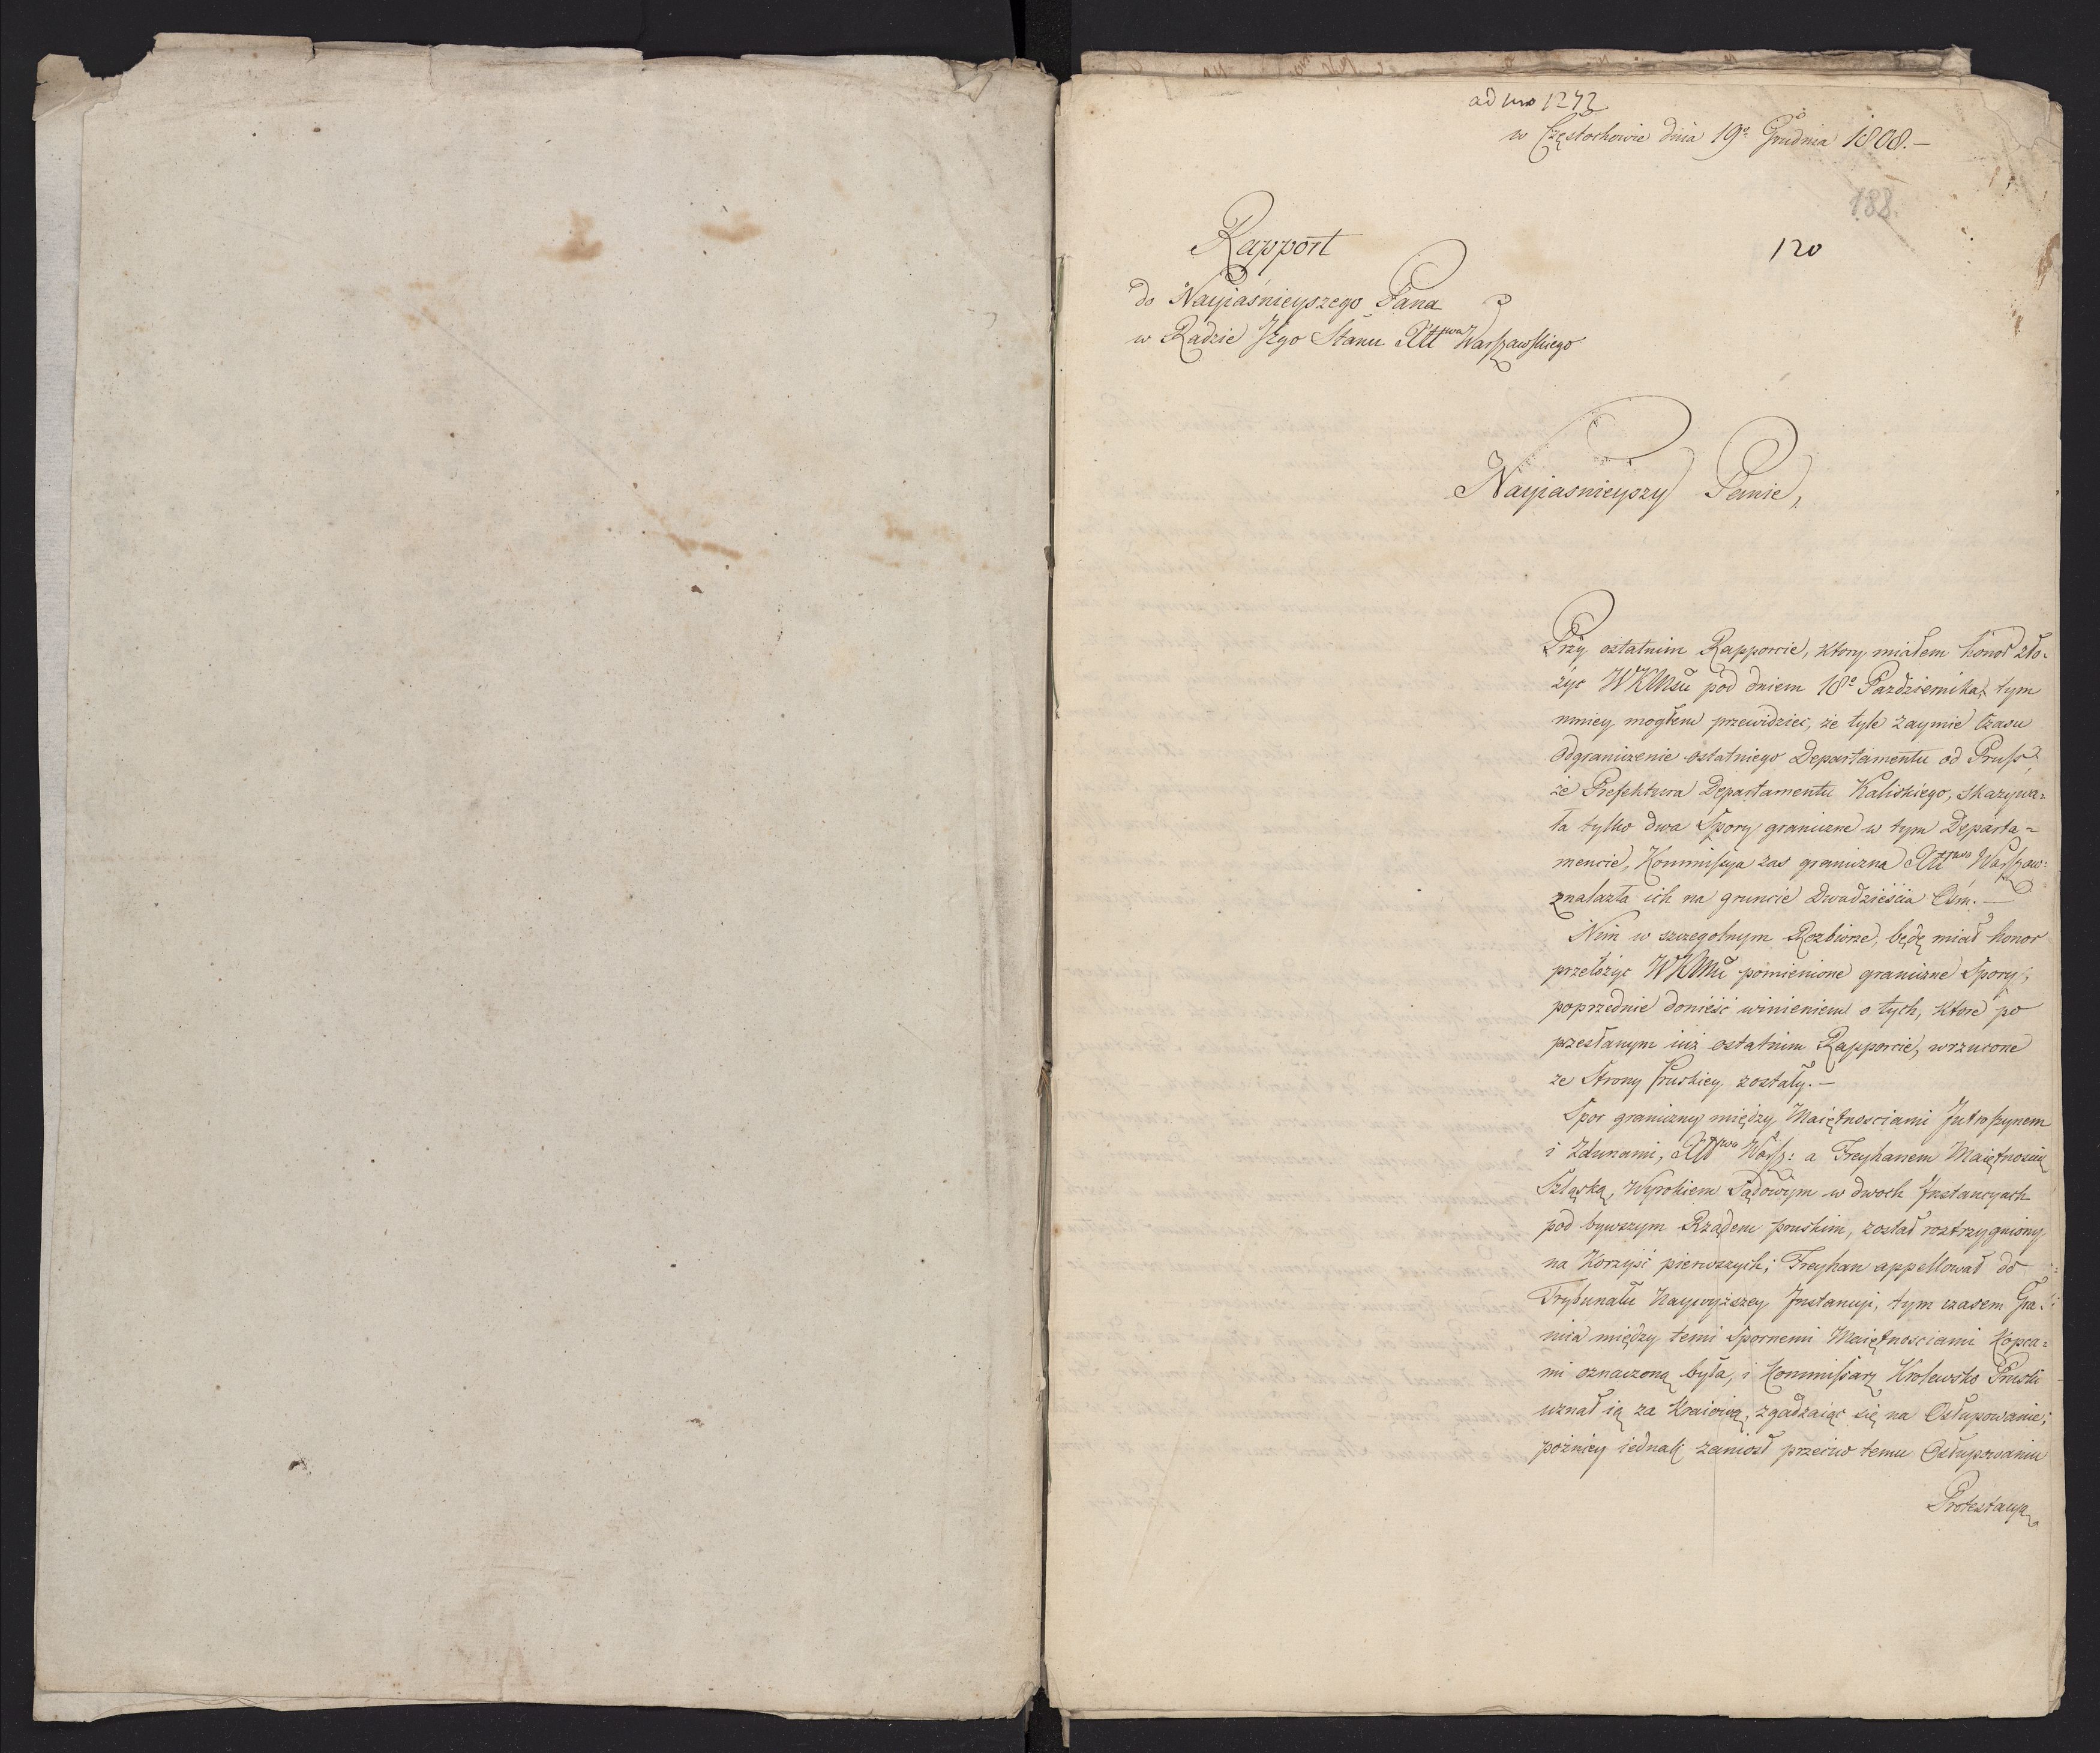 ad nro 1272
w Częstochowie dnia 19º Grudnia 1808.—
188.
120
Rapport
do Nayiaśnieyszego Pana
w Radzie Jego Stanu Xttwa Warszawskiego
Nayiasnieyszy Panie,
Przy ostatnim Rapporcie, ktory miałem honor zło=
życ WKMsu pod dniem 18º Pazdziernika, tym
mniey mogłem przewidziec, że tyle zaymie Czasu
Odgraniczenie ostatniego Departamentu od Pruss,
że Prefektura Departamentu Kaliskiego, skazywa=
ła tylko dwa Spory graniczne w tym Departa=
mencie, Kommissya zas graniczna Xttwa Warszaw:
znalazła ich na gruncie Dwadzieścia Ośm.—
Nim w szczegolnym Rozbiorze, będę miał honor
przełożyc WKMu pomienione graniczne Spory,
poprzednie donieść winieniem o tych, ktore po
przesłanym iuż ostatnim Rapporcie, wrzucone
ze Strony Pruskiey zostały.—
Spor graniczny między Maiętnosciami Jutroszynem
i Zdunami, Xttwa Warsz: a Freyhanem Maiętnoscią
Szląską, Wyrokiem Sądowym w dwoch Jnstancyach
pod bywszym Rządem pruskim, został roztrzygniony
na Korzyść pierwszych; Freyhan appellował do
Trybunału Naywyższey Jnstancyi, tym czasem Gra=
nica między temi Spornemi Maiętnosciami Kopca=
mi oznaczoną była, i Kommissarz Krolewsko Pruski
uznał ią za Kraiową, zgadzaiąc się na Osłupowanie;
poźniey iednak zaniosł przeciwo temu Osłupowaniu
Protestacyą